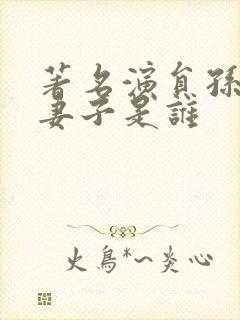 著名演員孫
妻子是誰
火鳥*~炎心